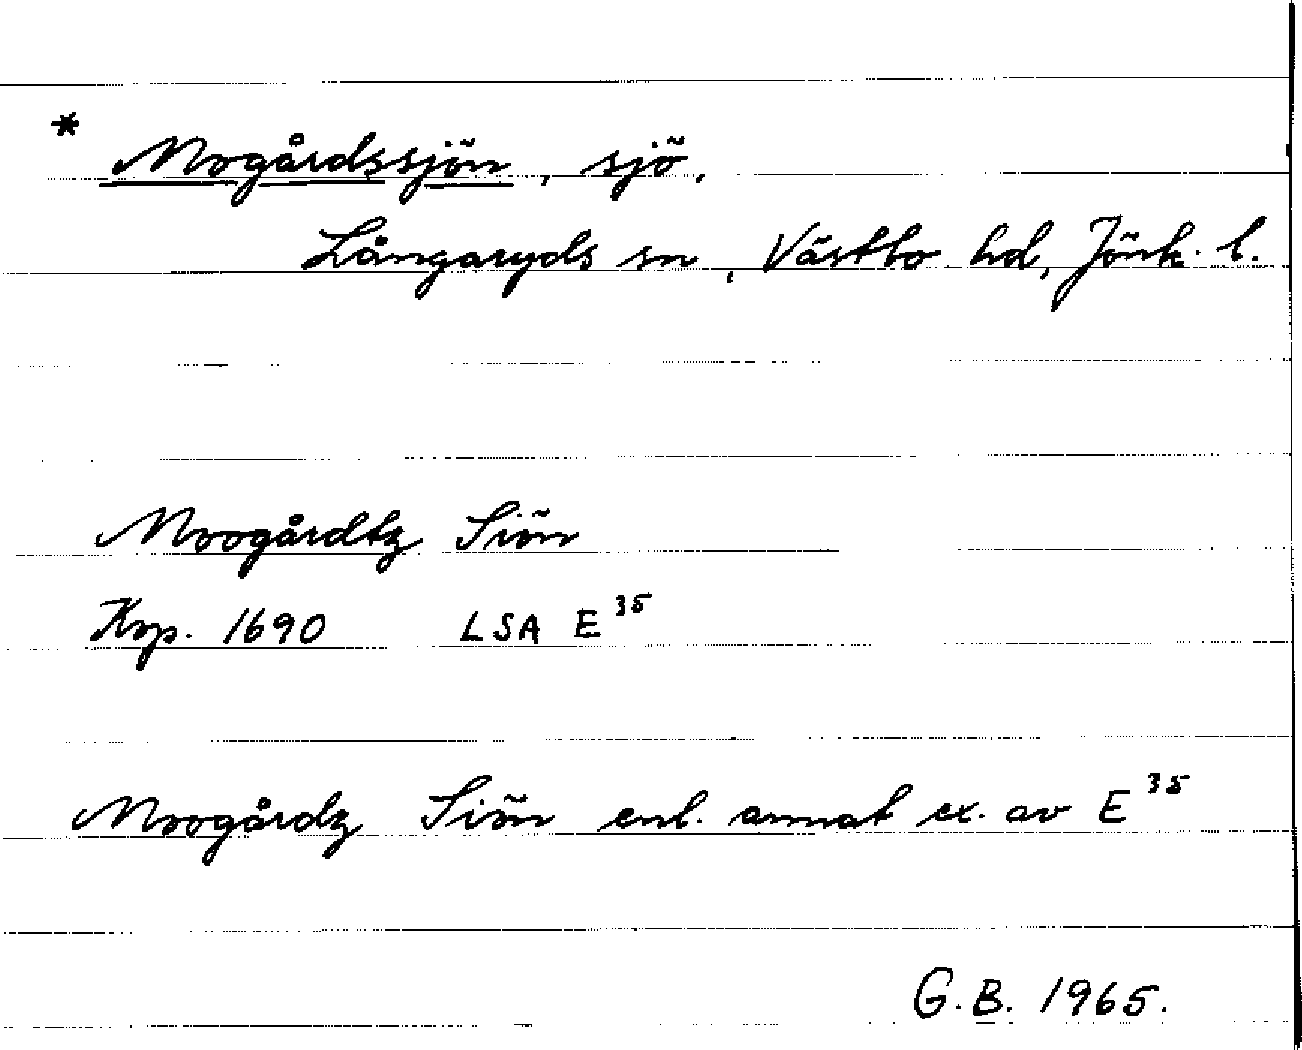 * Mogårdssjön, sjö,
Långaryds sn, Västbo hd, Jönk. l.
Moogårdtz Siön
Kop. 1690 LSA E³⁵
Moogårdz Siön enl. annat ex. av E³⁵
G.B. 1965.